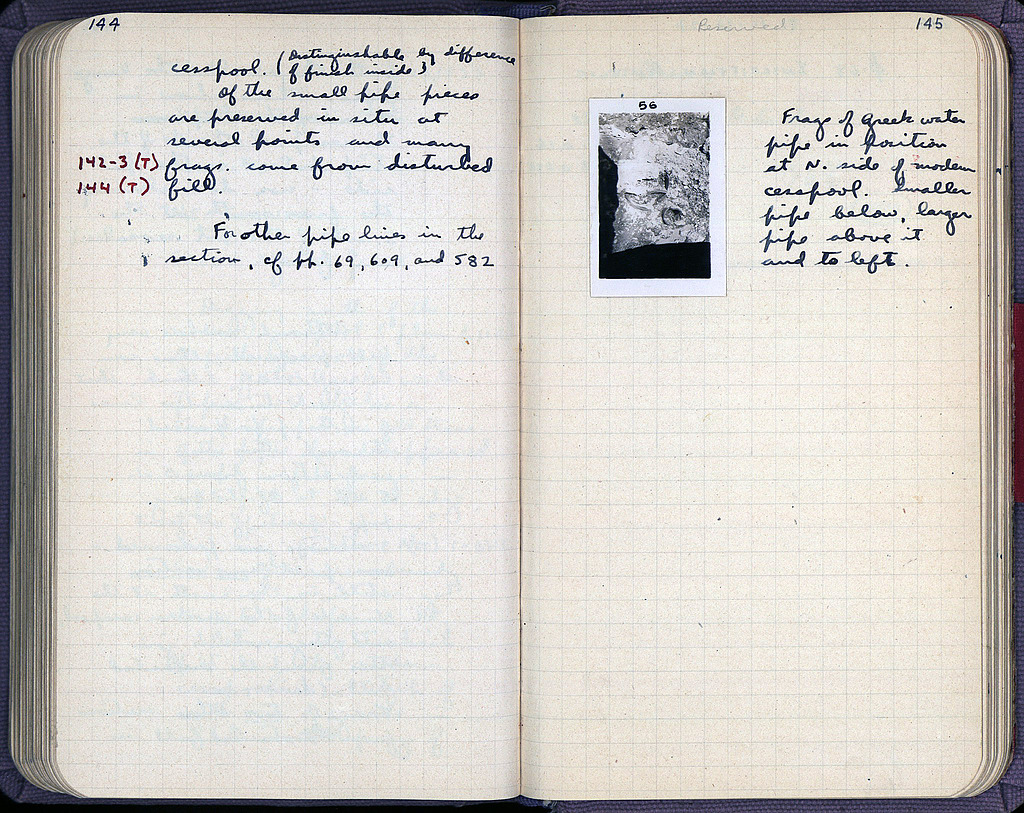 144
cesspool. (Distinguishable by difference
of finish inside)
Of the small pipe pieces
are preserved in situ at
several points and many
142-3 (T) frags. come from disturbed
144 (T) fill.
For other pipe lines in the
section, cf pp. 69, 609, and 582
Reserved
145
56
Frags of Greek water
pipe in position
at N. side of modern
cesspool. Smaller
pipe below, larger
pipe above it
and to left.